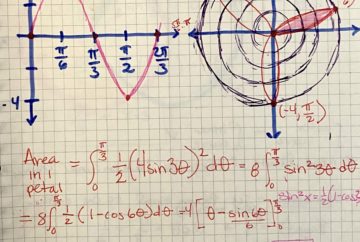 π/6 π/3 π/2 2π/3
-4
(-4, π/2)
Area in 1 petal = ∫₀^{π/3} 1/2 (4sin3θ)² dθ = 8∫₀^{π/3} sin²3θ dθ
sin²x = 1/2(1-cos
= 8∫₀^{π/3} 1/2 (1-cos6θ)dθ = 4[θ - sin6θ/6]₀^{π/3}